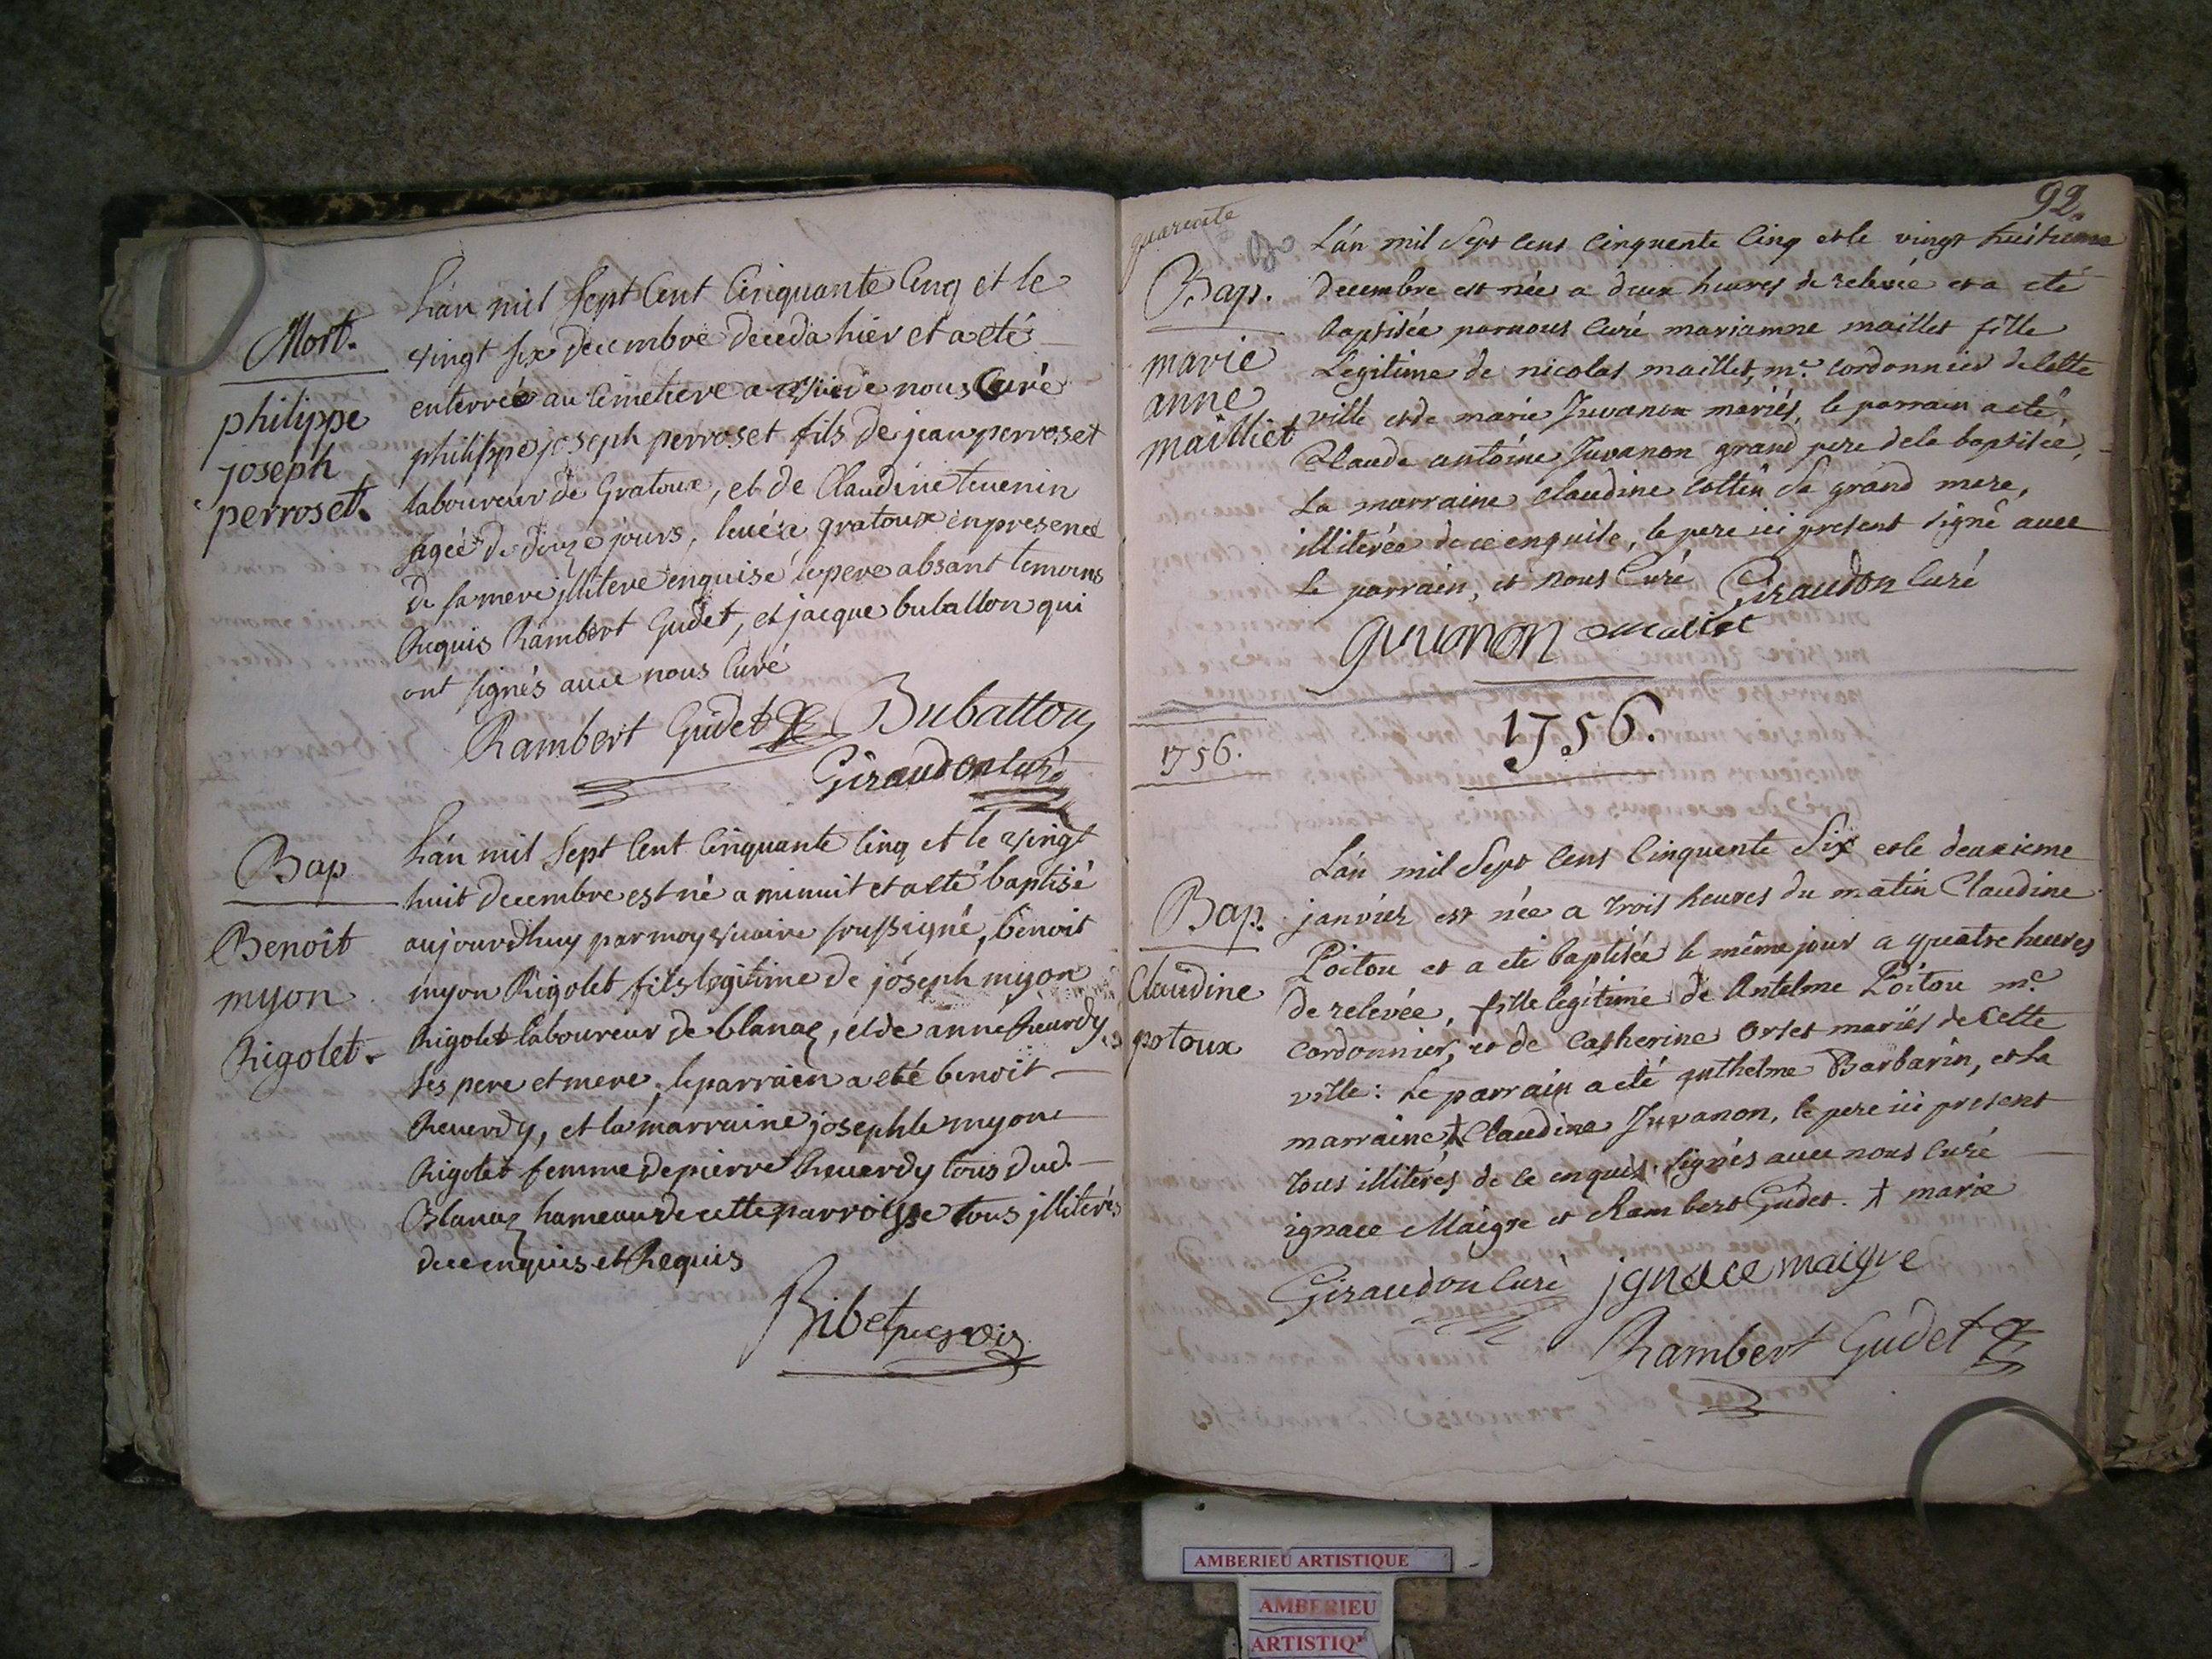 Mort.
philippe
joseph
perroset.
L'án mil sept Cent Cinquante Cinq et le
vingt six decembre deceda hier et a eté
enterré au Cimetiere a nous Curé
philippe joseph perroset fils de jean perroset
laboureur de Gratoux, et de Claudine tenenin
agée de douze jours, levée a gratoux en presence
de sa mere jllitere enquise le pere absant temoins
Requis Rambert Gudet, et jacque buballon qui
ont signés avec nous Curé
Rambert Gudet Buballon
Giraudon Curé
Bap
Benoît
myon
Rigolet.
L'án mil Sept Cent Cinquante Cinq et le vingt
huit decembre est né a minuit et a eté baptisé
aujourdhuy par moy vicaire soussigné, benoit
myon Rigolet fils legitime de joseph myon
Rigolet laboureur de blanaz, et de anne Reverdy,
ses pere et mere, le parrain a eté benoit
Reverdy, et la marraine josephte myon
Rigolet femme de pierre Reverdy tous dud.
Blanaz hameau de cette parroisse tous jlliterés
de ce enquis et Requis
Ribet
92.
quarente
L'án mil Sept Cent Cinquente Cinq et le vingt huitieme
Bap.
marie
anne
mailliet
decembre est née a deux heures de relevée et a eté
baptisée par nous Curé mariamne maillet fille
Legitime de nicolas maillet, me. Cordonnier de Cette
ville et de marie Juvanon mariés, le parrain a eté
Claude antoine Juvanon grand pere de la baptisée,
La marraine Claudine Cottin Sa grand mere,
illiterée de ce enquise, le pere ici present signé avec
le parrain, et nous Curé Giraudon Curé
guuanon maillet
1756.
1756.
Bap.
Claudine
potoux
L'án mil Sept Cent Cinquente Six et le deuxieme
janvier est née a trois heures du matin Claudine
Poitou et a eté baptisée le même jour a quatre heures
de relevée, fille legitime de Antelme Poitou me.
Cordonnier, et de Catherine Orset mariés de Cette
ville: Le parrain a eté anthelme Barbarin, et la
marraine ☨ Claudine Juvanon, le pere ici present
tous illiterés de ce enquis signés avec nous Curé
ignace Maigre et Rambert Gudet. ☨ marie
Giraudon Curé jgnace maigre
Rambert Gudet
AMBERIEU ARTISTIQUE
AMBERIEU
ARTISTIQ